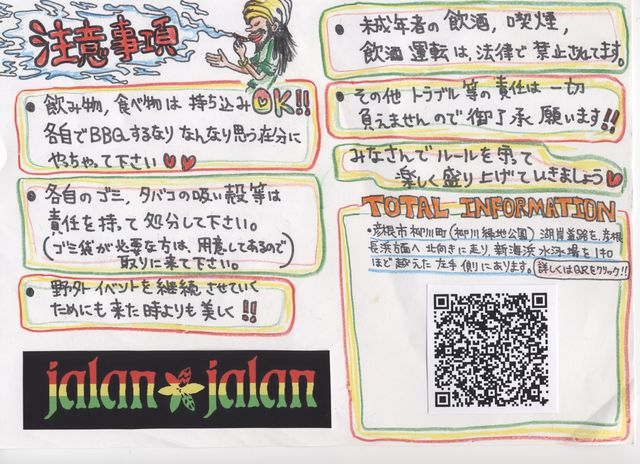 注意事項
● 飲み物,食べ物は 持ち込みOK!!
各自でBBQするなり なんなり思う存分に
やっちゃって下さい♥♥
● 各自のゴミ、タバコの吸い殻等は
責任を持って処分して下さい。
(ゴミ袋が必要な方は、用意してあるので
取りに来て下さい。)
● 野外イベントを継続させていく
ためにも来た時よりも美しく!!
jalan jalan
● 未成年者の飲酒,喫煙,
飲酒運転は,法律で禁止されてます。
● その他トラブル等の責任は一切
負えませんので御了承願います!!
みなさんでルールを守って
楽しく盛り上げていきましょう♥
TOTAL INFORMATION
・彦根市柳川町(柳川緑地公園) 湖岸道路を,彦根
長浜方面へ北向きに走り,新海浜水泳場を1キロ
ほど越えた左手側にあります。 詳しくはQRをクリック!!